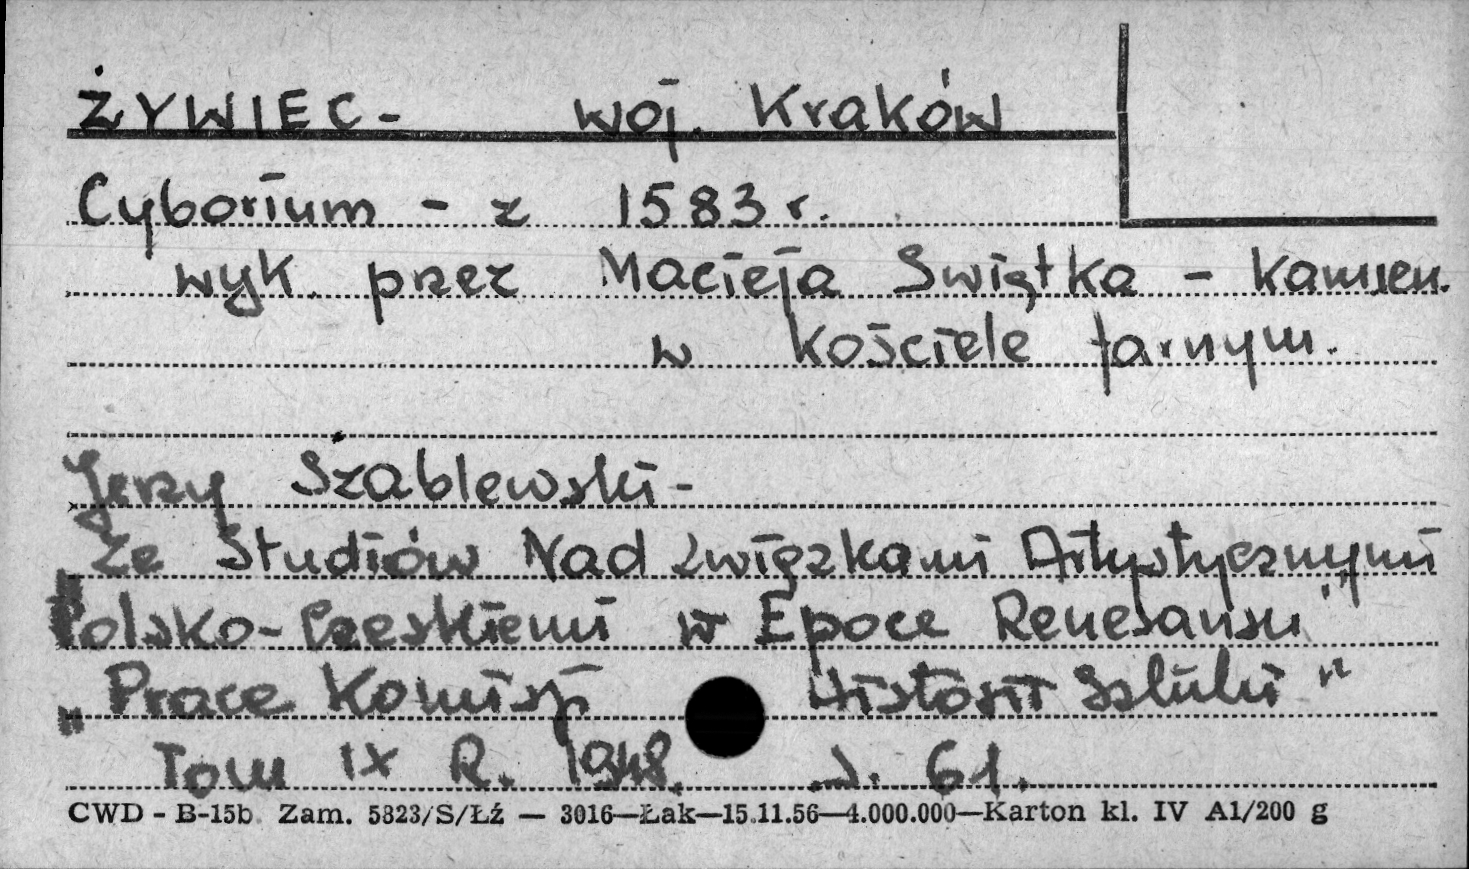 ŻYWIEC - woj. Kraków
Cyborium - z 1583 r.
wyk. przez Macieja Swiątka - kamien.
w kościele farnym.
Jerzy Szablewski -
Ze Studiów Nad Związkami Artystycznymi
Polsko-Czeskiemi w Epoce Renesansu"
„Prace Komisji Historii Sztuki"
Tom IX R. 1948. s. 61.
CWD - B-15b Zam. 5823/S/Łź — 3016—Łak—15.11.56—4.000.000—Karton kl. IV A1/200 g